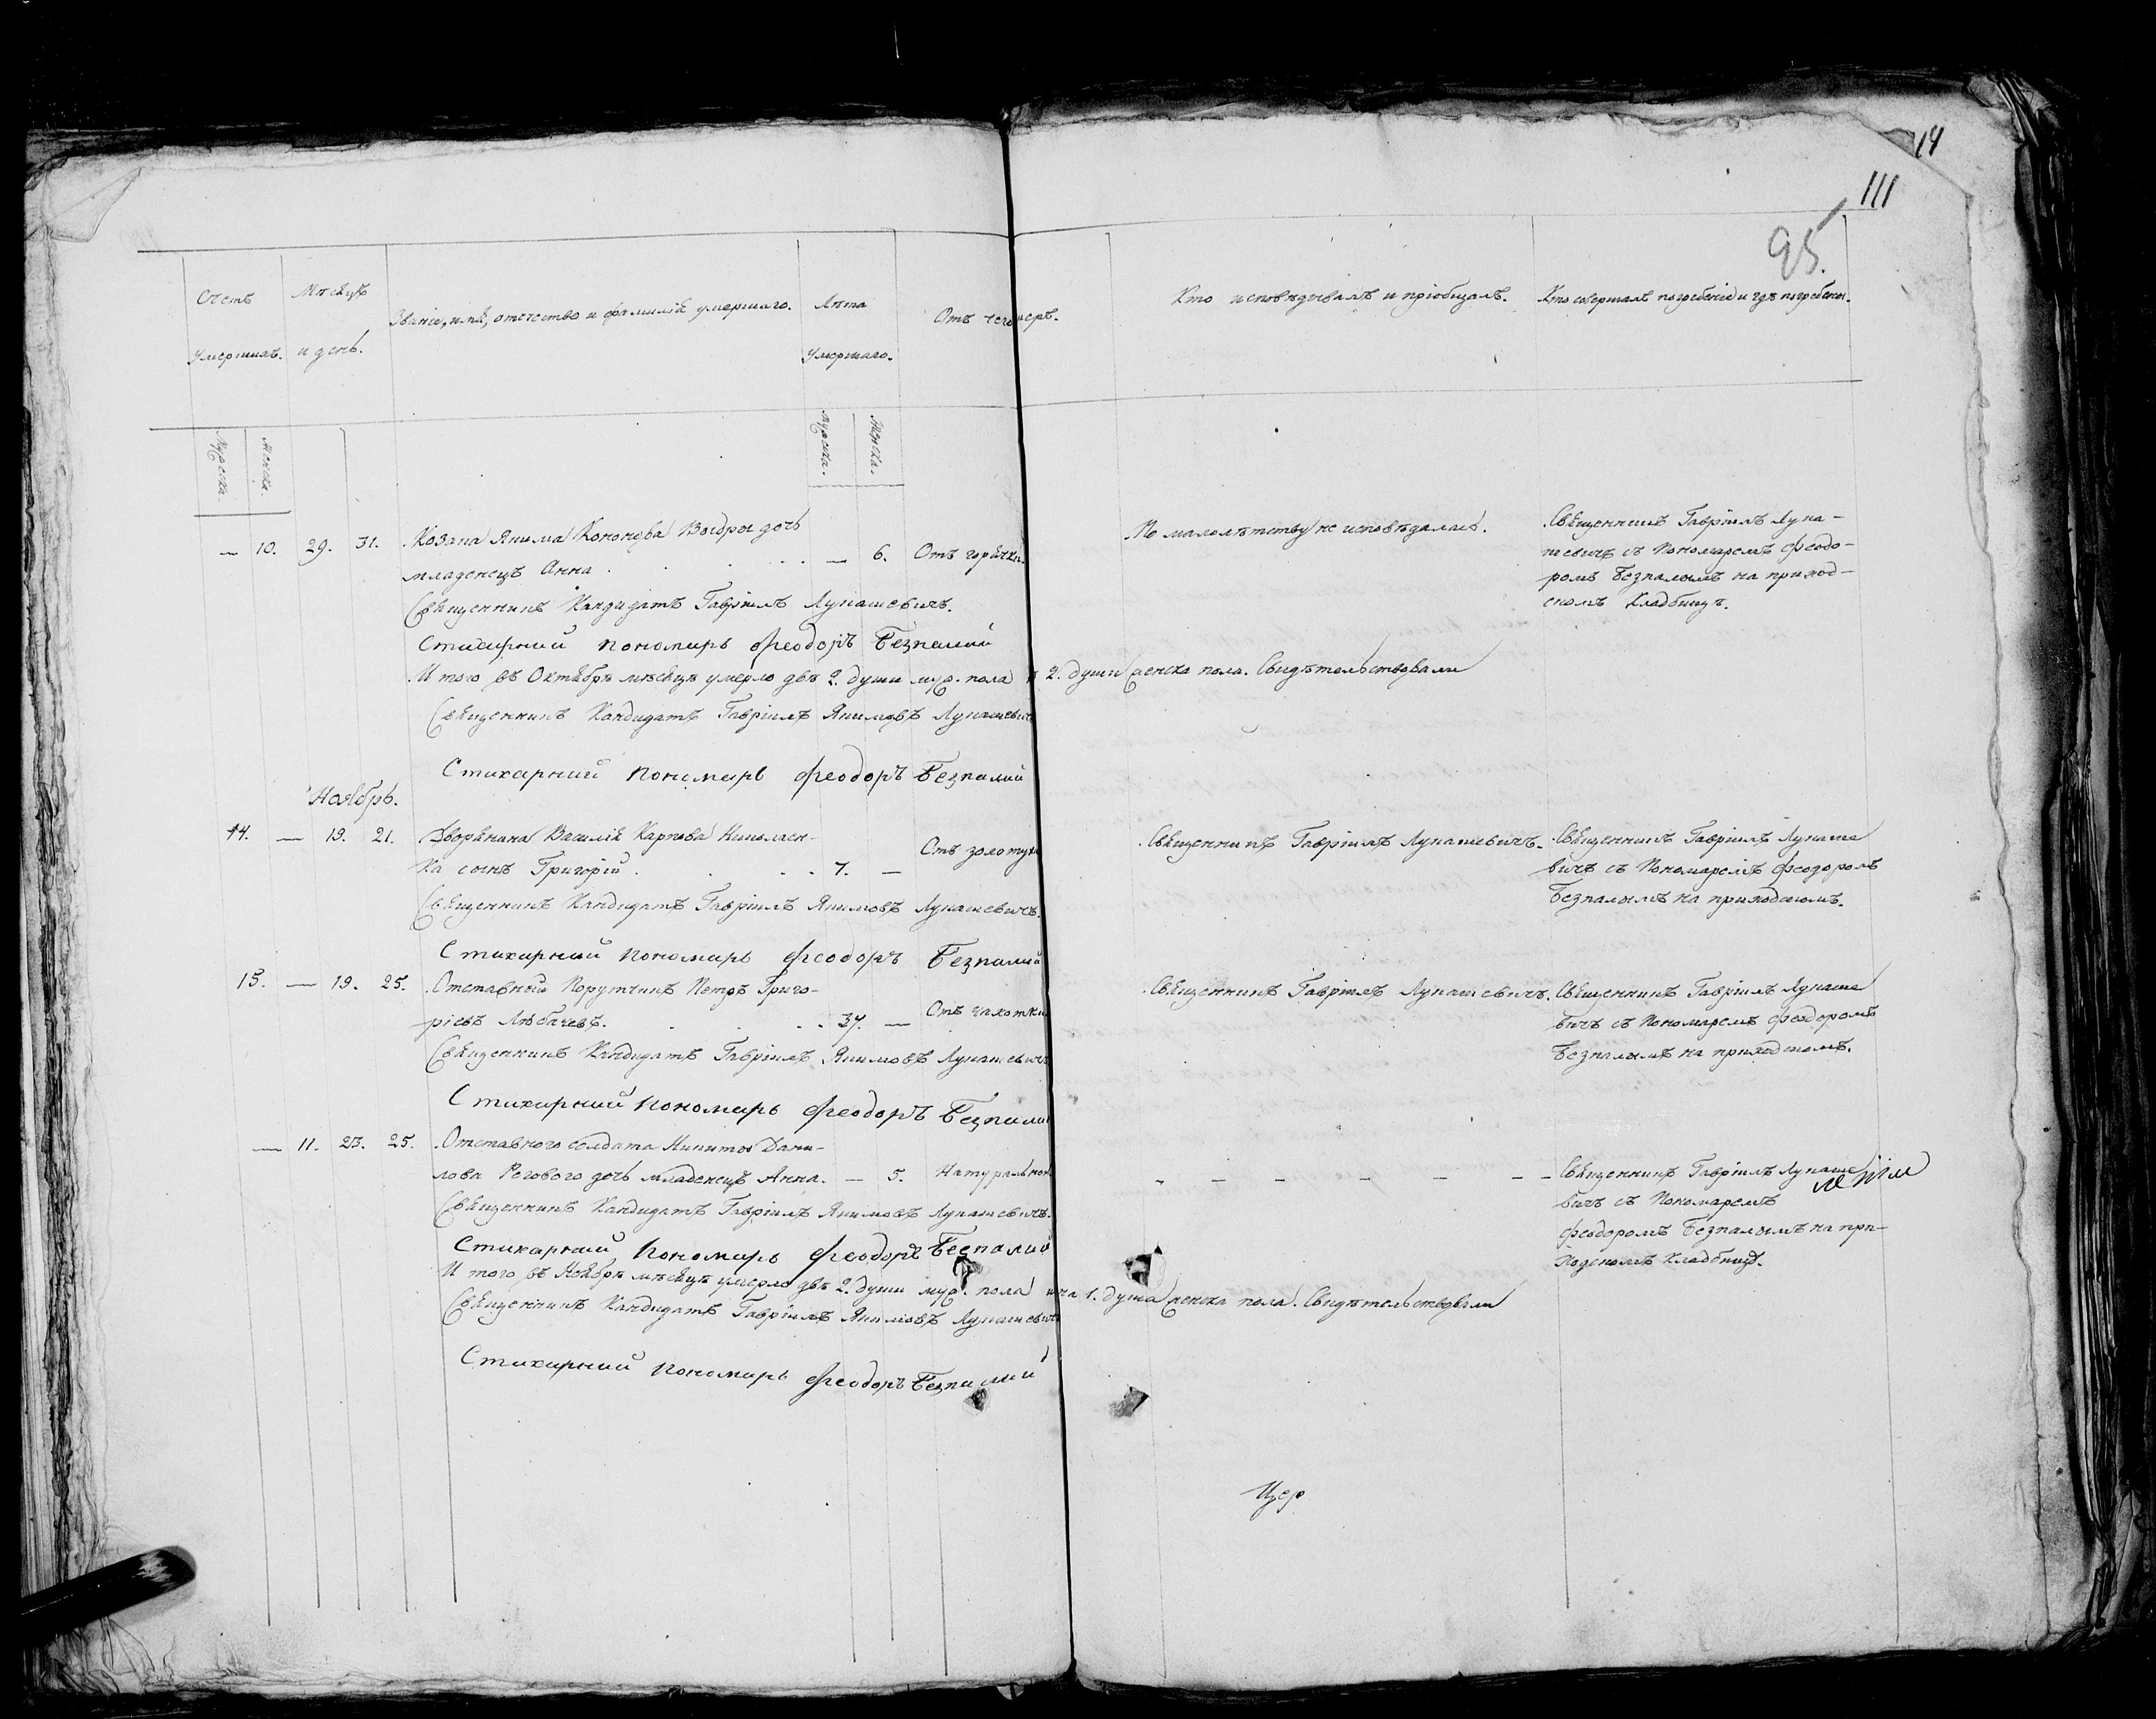 14
111
95.
Счетъ
умершихъ.
Мѣсяцъ
и день.
Званіе, имя, отечество и фамилія умершаго.
Лѣта
умершаго.
Отъ чего меръ.
Кто исповѣдывалъ и пріобщалъ.
Кто совершалъ погребеніе и гдѣ погребены.
Мужеска.
Женска.
Мужеска.
Женска.
— 10. 29. 31. Козака Якима Кононова дочь
младенецъ Анна . . . . — 6. Отъ горячки.
По малолѣтству не исповѣдалась.
Священникъ Гавріилъ Лука-
шевичъ съ Пономаремъ Феодо-
ромъ Безпалымъ на приход-
скомъ Кладбищѣ.
Священникъ Кандидатъ Гавріилъ Лукашевичъ.
Стихарний пономарь Феодоръ Безпалий
И того въ Октябрѣ мѣсяцѣ умерло двѣ 2. души муж. пола и 2. души женска пола. Свидѣтельствовали
Священникъ Кандидатъ Гавріилъ Якимовъ Лукашевичъ
Стихарний пономарь Феодоръ Безпалий
Ноябрь.
14. — 19. 21. Дворянина Василія Карпова Николаен-
ка сынъ Григорій . . . . 7. — Отъ золотухи
Священникъ Гавріилъ Лукашевичъ.
Священникъ Гавріилъ Лукаше
вичъ съ Пономаремъ Феодоромъ
Безпалымъ на приходскомъ.
Священникъ Кандидатъ Гавріилъ Якимовъ Лукашевичъ.
Стихарний пономарь Феодоръ Безпалий
15. — 19. 25. Отставный Порутчикъ Петръ Григо-
рієвъ . . . . 37. — Отъ чахотки
Священникъ Гавріилъ Лукашевичъ.
Священникъ Гавріилъ Лукаше
вичъ съ Пономаремъ Феодоромъ
Безпалымъ на приходскомъ.
Священникъ Кандидатъ Гавріилъ Якимовъ Лукашевичъ
Стихарний пономарь Феодоръ Безпалий
— 11. 23. 25. Отставного солдата Никиты Дани-
лова Рогового дочь младенецъ Анна. — 5. Натуральной
- - - - - - -
Священникъ Гавріилъ Лукаше
вичъ съ Пономаремъ
Феодоромъ Безпалымъ на при-
ходскомъ Кладбищѣ.
Священникъ Кандидатъ Гавріилъ Якимовъ Лукашевичъ.
Стихарний Пономарь Феодоръ Безпалий
И того въ Ноябрѣ мѣсяцѣ умерло двѣ 2. души муж. пола 1. душа женска пола. Свидѣтельствовали
Священникъ Кандидатъ Гавріилъ Якимовъ Лукашевичъ
Стихарний пономарь Феодоръ Безпалий
Цер